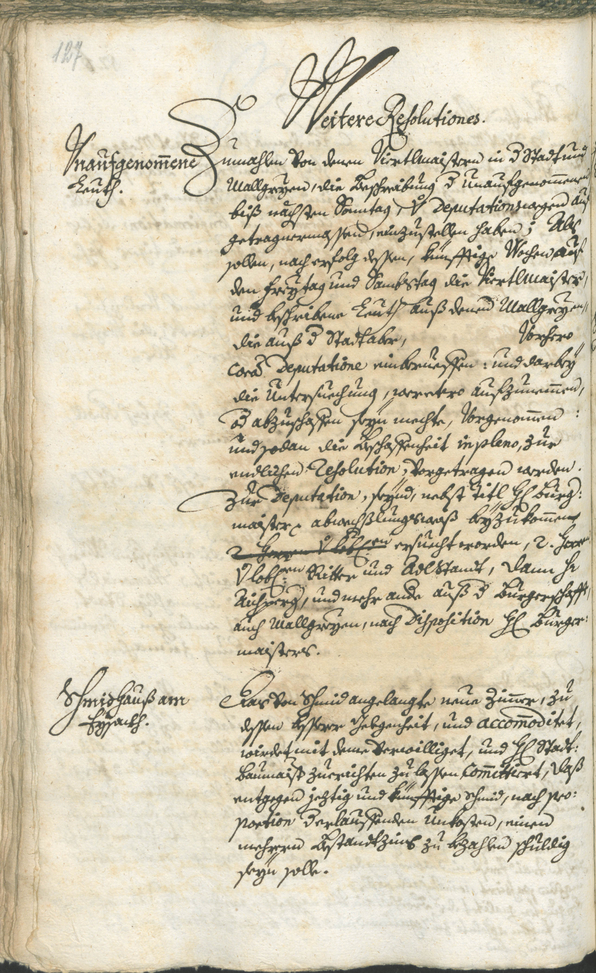 127
Weitere Resolutiones.
Unaufgenom̅ene
Leuth.
Zumahlen von denen Viertlmaistern in d Stadt und
Wallgreyen, die Beschreibung d Unaufgenommenen
biß nächsten Sonntag, deputations wegen auf
getragnermassen, einzustellen haben; Als
sollen, nach erfolg dessen, künfftige Wochen auf
den Freytag und Sambstag die Viertlmaister,
und beschribene Leuth auß denen Wallgreyen,
die auß d Stadt aber, Vorhero
corā Deputatione einberueffen: und darbey
die Untersuechung, wer etwo aufzunemmen,
od abzuschaffen seyn mechte, Vorgenommen:
und sodan die Beschaffenheit in pleno, zur
endlichen Resolution, Vorgetragen werden.
Zur Deputation, seynd, nebst titl H: Burg:
maister abwechßlungsweiß beyzukommen
2 Herren ersuecht worden, 2. Herrn
V lobl: en Ritter und AdlStandt, dann H:
und mehr and auß d Burgerschafft,
auch Wallgreyen, nach Disposition H: Burger:
maisters.
Schmidhauß am
Eysach.
Das von Schmid angelangte neue Zimmer, zu
dessen besserer Gelegenheit, und accommoditet,
wirdet mit deme verwilliget, und H: Stadt:
Baumaist zuerichten zu lassen Committiert, daß
entgegen jeztig und künfftige Schmid, nach pro:
portion d erlauffenden Unkosten, einen
mehrern Bestandtzins zu bezahlen schuldig
seyn solle.